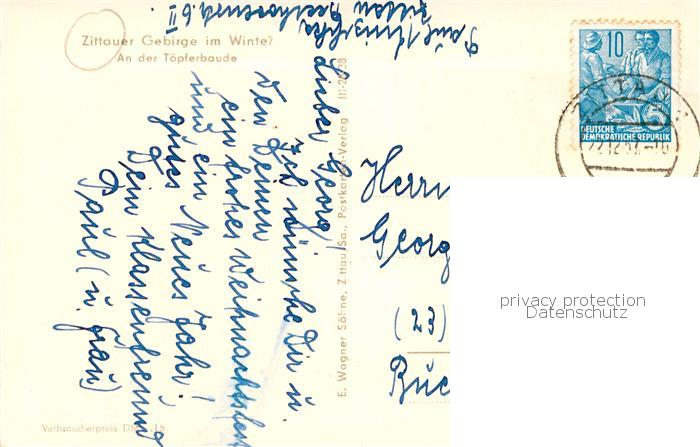 Zittauer Gebirge im Winter
An der Töpferbaude
Zittau
Lieber Georg!
Ich wünsche Dir u.
den Deinen
ein frohes Weihnachtsfest
und ein Neues Jahr!
gutes
Dein Klassenfreund
Paul (u. Frau)
E. Wagner Söhne, Zittau/Sa., Postkarten-Verlag III-
10
DEUTSCHE
DEMOKRATISCHE REPUBLIK
ZITTAU
Herrn
Georg
(23)
Buc
privacy protection
Datenschutz
Verbraucherpreis DM -,15